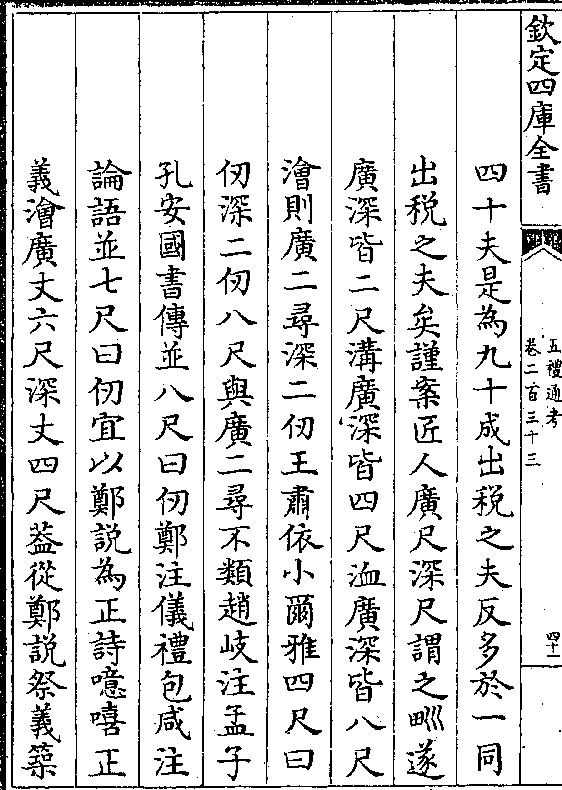 欽定四庫全書
五禮通考
卷二百三十三
四十一
四十夫是為九十成出税之夫反多於一同
出税之夫矣謹案匠人廣尺深尺謂之𤰕遂
廣深皆二尺溝廣深皆四尺洫廣深皆八尺
澮則廣二尋深二仞王肅依小爾雅四尺曰
仞深二仞八尺與廣二尋不類趙岐注孟子
孔安國書傳並八尺曰仞鄭注儀禮包咸注
論語並七尺曰仞宜以鄭説為正詩噫嘻正
義澮廣丈六尺深丈四尺葢從鄭説祭義築